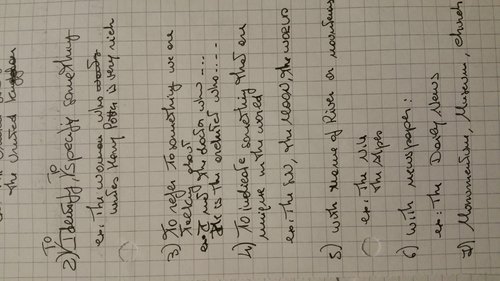 the United Kingdom
To To
2) Identify / Specify something
ex: The woman who
writes Harry Potter is very rich
3) To refer to something we are
talking about
ex: I met the doctor who ....
He is the architect who ....
4) To indicate something that are
unique in the world
ex: The sun, the Moon, the
5) with name of River or mountains
ex: The Nile
The Alpes
6) with newspaper:
ex: The Daily News
7) Monumentum, Museum, Church